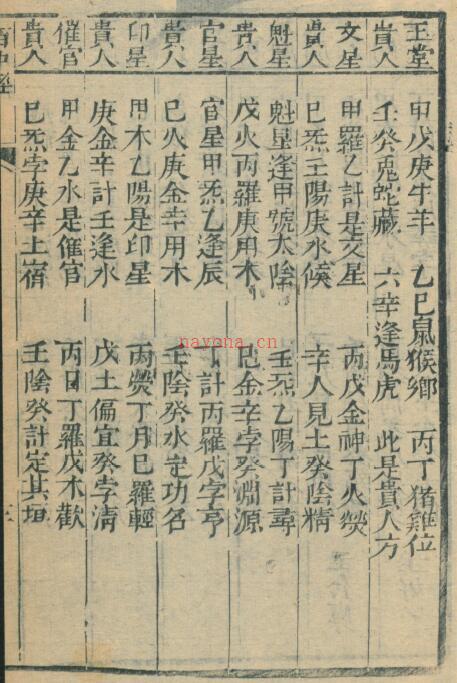 玉堂 甲戊庚牛羊 乙巳䑕猴鄉 丙丁猪雞位
貴人 壬癸兔蛇藏 六辛逢馬虎 此是貴人方
文星 甲羅乙計是文星 丙戊金神丁火熒
貴人 巳炁王陽庚水候 辛人見土癸陰精
魁星 魁星逢甲號太陰 壬炁乙陽丁計尋
貴人 戊火丙羅庚用木 巳金辛孛癸淵源
官星 官星甲炁乙逢辰 丁計丙羅戊孛亨
貴人 巳火庚金辛用木 壬陰癸水定功名
印星 甲木乙陽是印星 丙熒丁月巳羅輕
貴人 庚金辛計壬逢水 戊土偏宜癸孛淸
催官 甲金乙水是催官 丙日丁羅戊木歡
貴人 巳炁孛庚辛土宿 壬陰癸計定其垣
nayona.cn